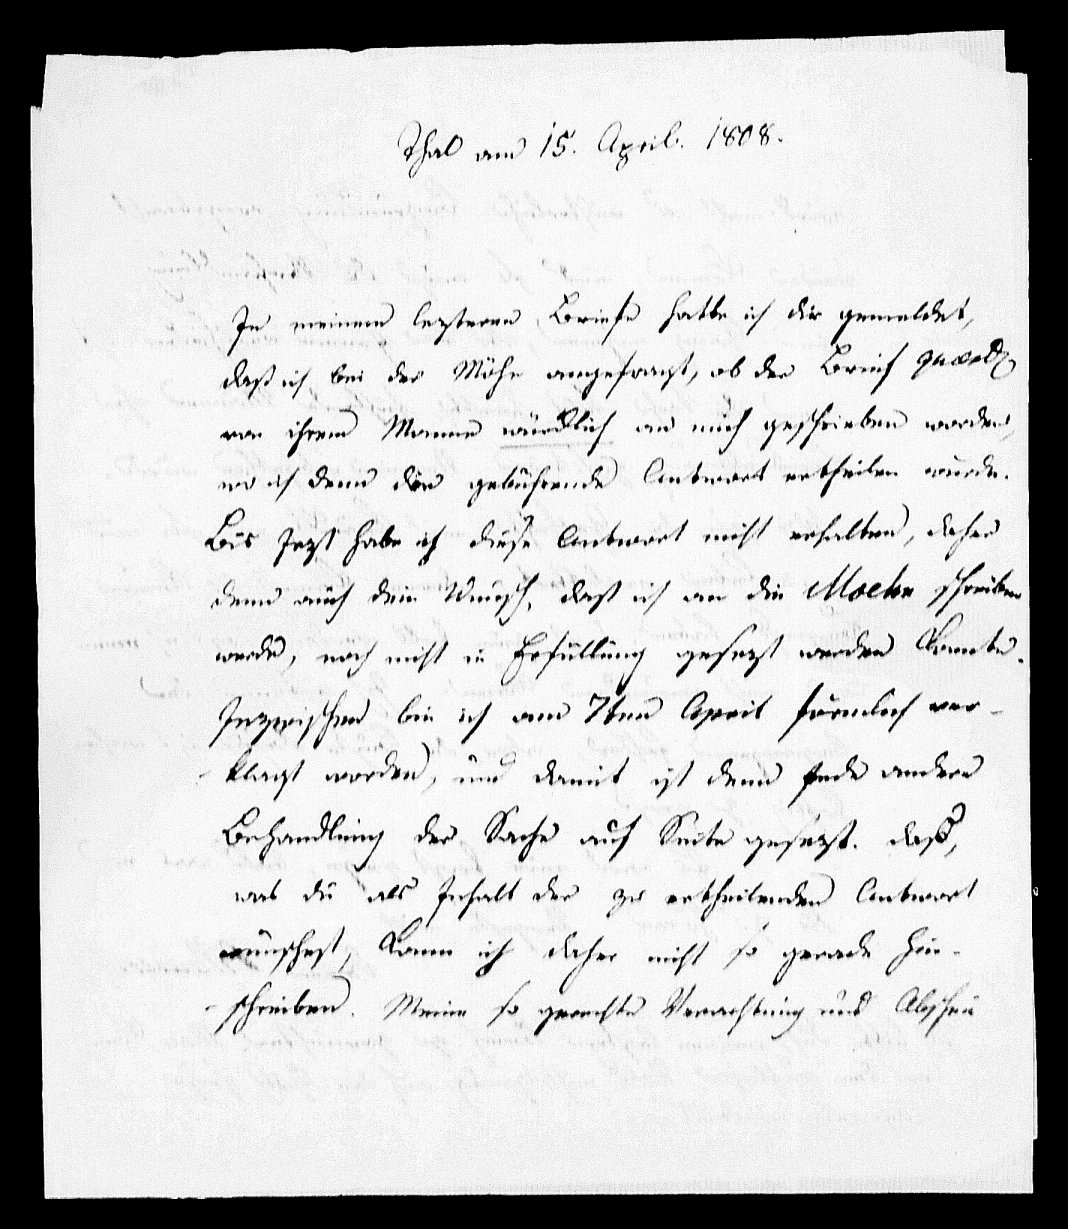 Thal am 15. April. 1808.
In meinem lezteren Briefe hatte ich dir gemeldet,
daß ich bei der Möhn angefragt, ob der Brief quaest.
von ihrem Manne würklich an mich geschrieben worden,
wo ich denn die gebührende Antwort ertheilen würde.
Bis jezt habe ich diese Antwort nicht erhalten, daher
denn auch dein Wunsch, daß ich an die Moehn schreiben
werde, noch nicht in Erfüllung gesezt werden konnte.
Inzwischen bin ich am 7ten April förmlich ver-
klagt worden, und damit ist denn jede andere
Behandlung der Sache auf Seite gesezt. daß,
was du als Inhalt der zu ertheilenden Antwort
wünschest, kann ich daher nicht so gerade hin-
schreiben. Meine so gerechte Verachtung und Abscheu